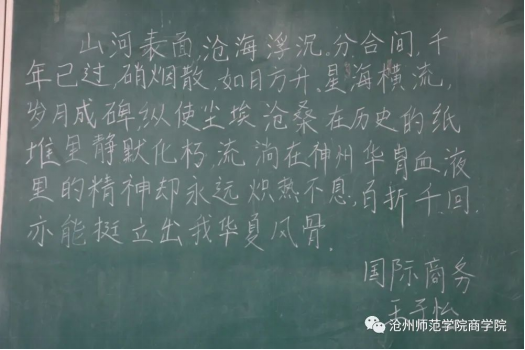 山河表面,沧海浮沉。分合间,千
年已过,硝烟散,如日方升、星海横流,
岁月成碑,纵使尘埃沧桑在历史的纸
堆里静默化朽,流淌在神州华胄血液
里的精神却永远炽热不息,百折千回,
亦能挺立出我华夏风骨.
国际商务
王子怡
沧州师范学院商学院